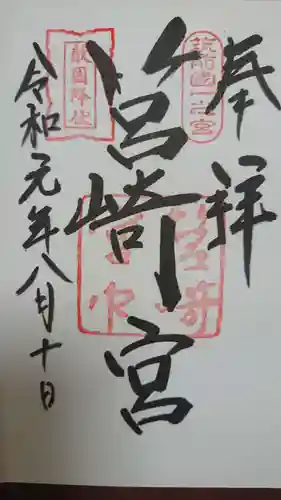 奉拝
筑前國一之宮
筥崎宮
筥崎宮印
敵国降伏
令和元年八月十日